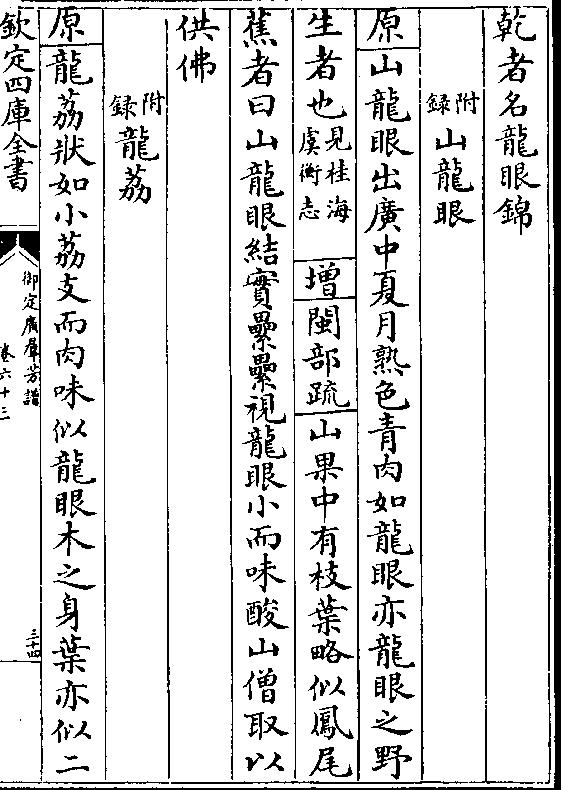 乾者名龍眼錦
附録 山龍眼
原山龍眼出廣中夏月熟色青肉如龍眼亦龍眼之野
生者也見桂海虞衡志 增閩部疏山果中有枝葉略似鳳尾
蕉者曰山龍眼結實纍纍視龍眼小而味酸山僧取以
供佛
附録 龍荔
原龍荔狀如小荔支而肉味似龍眼木之身葉亦似二
欽定四庫全書
御定廣羣芳譜
卷六十三
三十四